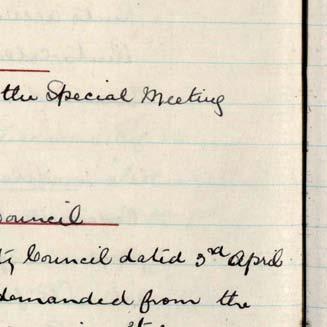 the Special Meeting
Council
ty Council dated 3rd April
demanded from the